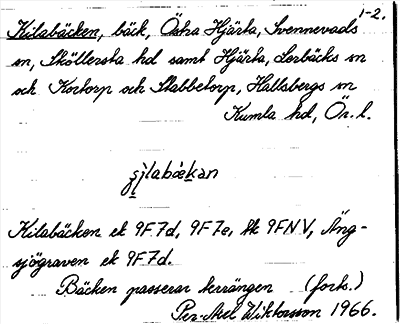 1-2.
Kilabäcken, bäck, Östra Hjärta, Svennevads
sn, Sköllersta hd samt Hjärta, Lerbäcks sn
och Kortorp och Skabbetorp, Hallsbergs sn
Kumla hd, Ör. l.
Kilabäcken ek 9F7d, 9F7e, sk 9FNV, Äng-
sjögraven ek 9F7d.
Bäcken passerar terrängen (forts.)
Per-Axel Wiktorsson 1966.